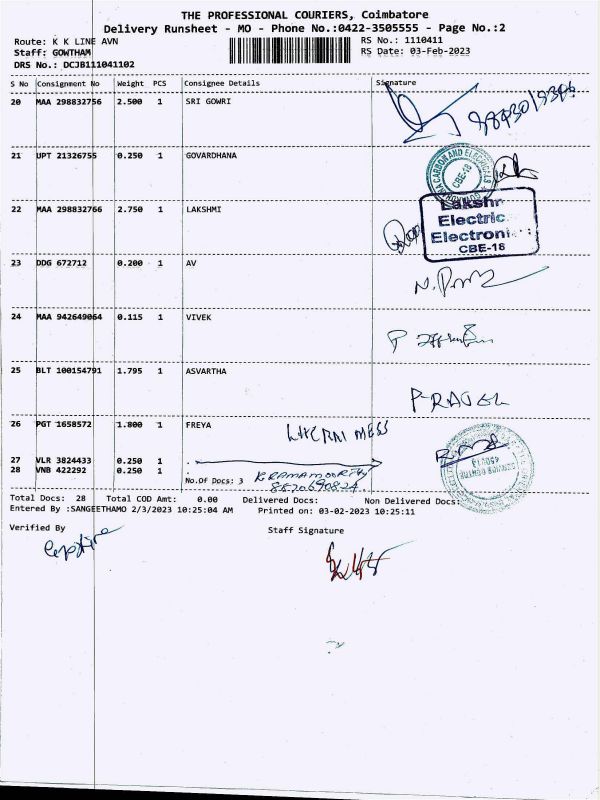 THE PROFESSIONAL COURIERS, Coimbatore
Delivery Runsheet - MO - Phone No.:0422-3505555 - Page No.:2
Route: K K LINE AVN RS No.: 1110411
Staff: GOWTHAM RS Date: 03-Feb-2023
DRS No.: DCJB111041102
S No Consignment No Weight PCS Consignee Details Signature
20 MAA 298832756 2.500 1 SRI GOWRI
21 UPT 21326755 0.250 1 GOVARDHANA
CARBON AND ELECTRICALS
CBE-18
22 MAA 298832766 2.750 1 LAKSHMI
Electric
Electroni
CBE-18
23 DDG 672712 0.200 1 AV
24 MAA 942649064 0.115 1 VIVEK
25 BLT 100154791 1.795 1 ASVARTHA
26 PGT 1658572 1.800 1 FREYA
MESS
27 VLR 3824433 0.250 1 .
28 VNB 422292 0.250 1 .
No.Of Docs: 3
8870690824
Total Docs: 28 Total COD Amt: 0.00 Delivered Docs: Non Delivered Docs:
Entered By :SANGEETHAMO 2/3/2023 10:25:04 AM Printed on: 03-02-2023 10:25:11
Verified By Staff Signature